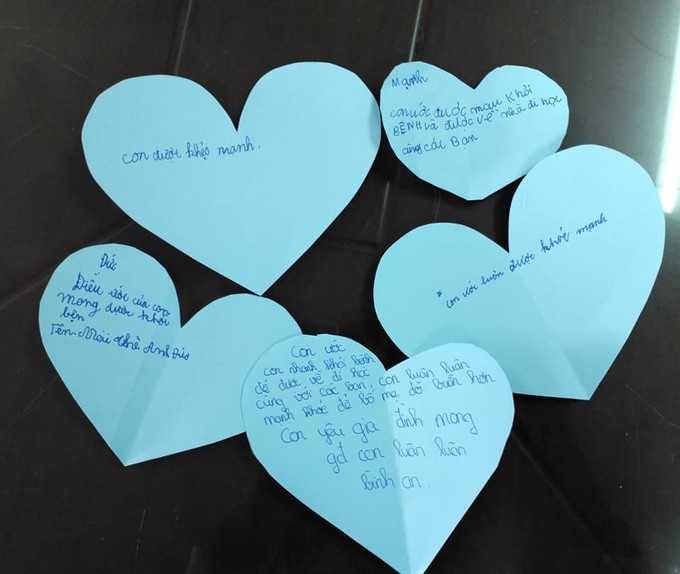 con được khẻo mạnh.
Mạnh
con ước được mau khỏi
BỆNH và được về nhà đi học
cùng các Bạn
* con ước luôn được khỏe mạnh
Đức
Điều ước của con
mong được khỏi
bện
Tên. Mai thế Anh Đức
Con ước
con nhanh khỏi bệnh
để được về đi học
cùng với các bạn, con luôn luôn
mạnh khỏe để bố mẹ đỡ buồn hơn
Con yêu gia đình mong
gđ con luôn luôn
bình an.